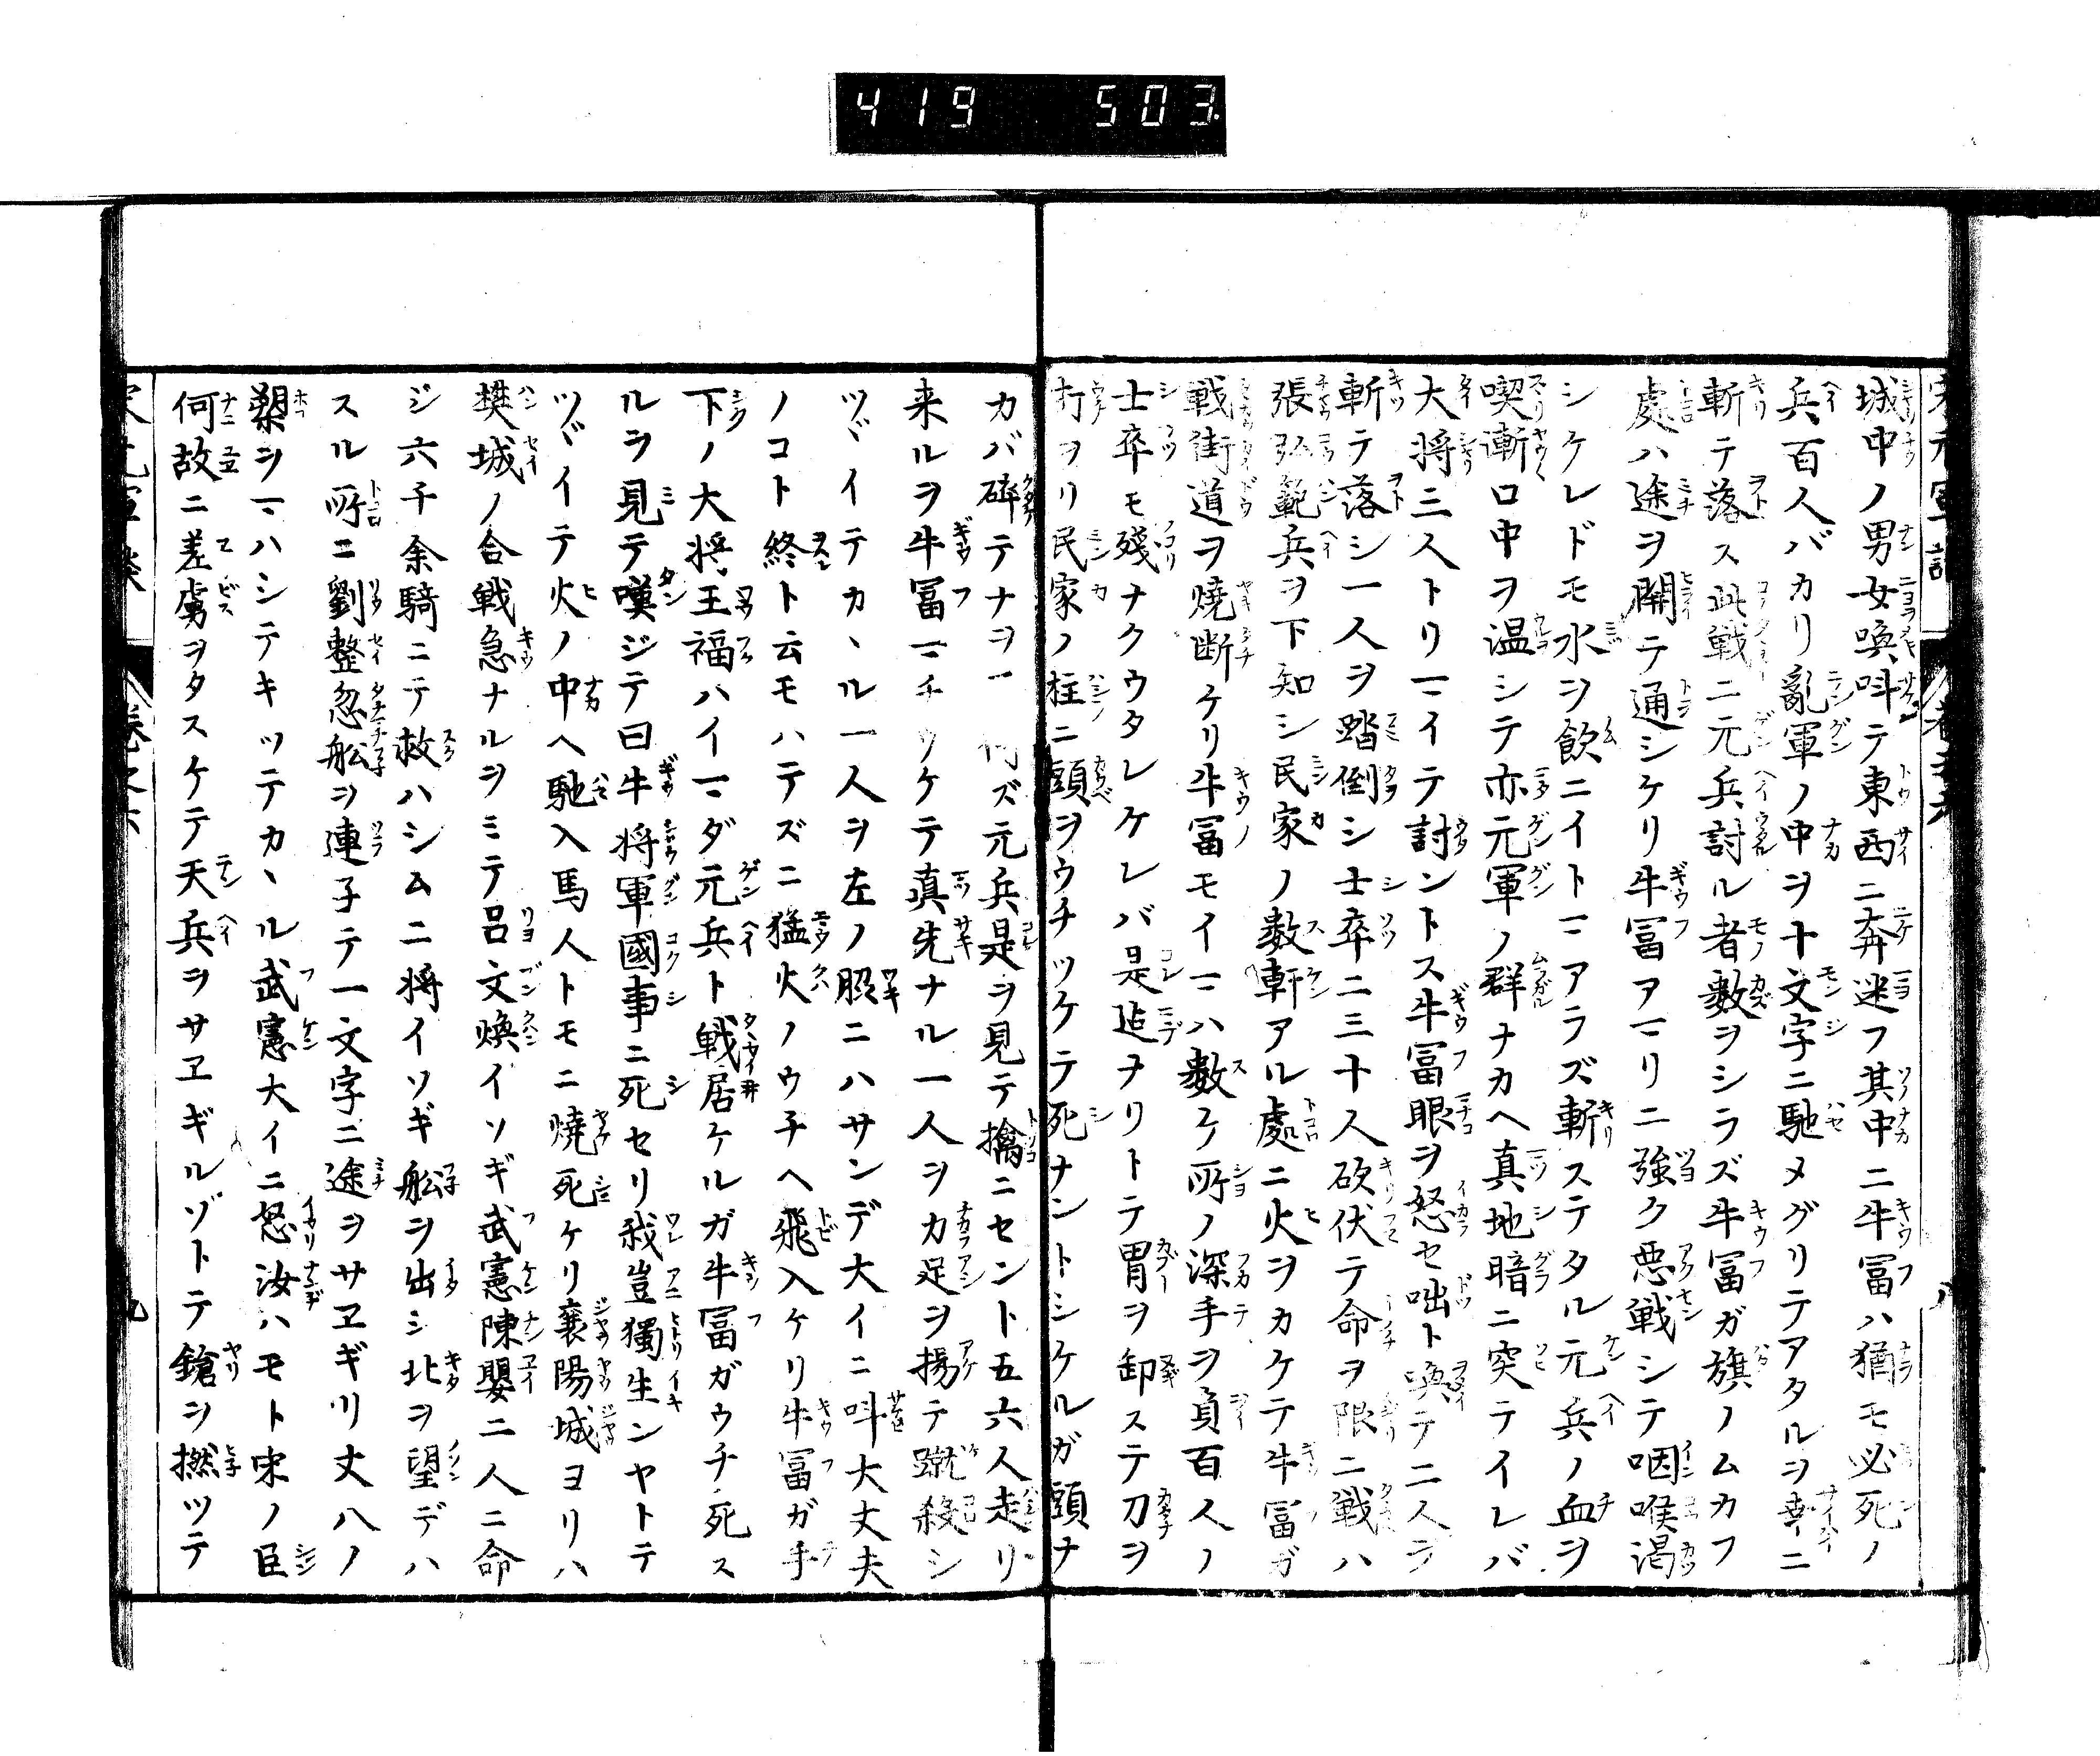 419 503.
城中ノ男女喚呌テ東西ニ奔迷フ其中ニ牛冨ハ猶モ必死ノ
兵百人バカリ亂軍ノ中ヲ十文字ニ馳メグリテアタルヲ幸ニ
斬テ落ス此戦ニ元兵討ル者數ヲシラズ牛冨ガ旗ノムカフ
處ハ途ヲ開テ通シケリ牛冨アマリニ強ク悪戦シテ咽喉渇
シケレドモ水ヲ飲ニイトマアラズ斬ステタル元兵ノ血ヲ
喫漸口中ヲ温シテ亦元軍ノ群ナカヘ真地暗ニ突テイレバ
大将二人トリマイテ討ントス牛冨眼ヲ怒セ咄ト喚テ二人ヲ
斬テ落シ一人ヲ踏倒シ士卒二三十人砍伏テ命ヲ限ニ戦ハ
張弘範兵ヲ下知シ民家ノ數軒アル處ニ火ヲカケテ牛冨ガ
戦街道ヲ燒断ケリ牛冨モイマハ數ケ所ノ深手ヲ負百人ノ
士卒モ殘ナクウタレケレバ是迠ナリトテ胄ヲ卸ステ刀ヲ
折ヲリ民家ノ柱ニ頭ヲウチツケテ死ナントシケルガ頭ナ
カバ碎テナヲ 何ズ元兵是ヲ見テ擒ニセント五六人走リ
来ルヲ牛冨マチツケテ真先ナル一人ヲカ足ヲ揚テ蹴殺シ
ツヾイテカヽル一人ヲ左ノ脇ニハサンデ大イニ呌大丈夫
ノコト終ト云モハテズニ猛火ノウチヘ飛入ケリ牛冨ガ手
下ノ大将王福ハイマダ元兵ト戦居ケルガ牛冨ガウチ死ス
ルヲ見テ嘆ジテ曰牛将軍國事ニ死セリ我豈獨生ンヤトテ
ツヾイテ火ノ中ヘ馳入馬人トモニ燒死ケリ襄陽城ヨリハ
樊城ノ合戦急ナルヲミテ呂文煥イソギ武憲陳嬰二人ニ命
ジ六千余騎ニテ救ハシム二将イソギ舩ヲ出シ北ヲ望デハ
スル所ニ劉整忽舩ヲ連子テ一文字ニ途ヲサヱギリ丈八ノ
槊ヲマハシテキツテカヽル武憲大イニ怒汝ハモト宋ノ臣
何故ニ差虜ヲタスケテ天兵ヲサヱギルゾトテ鎗ヲ撚ツテ